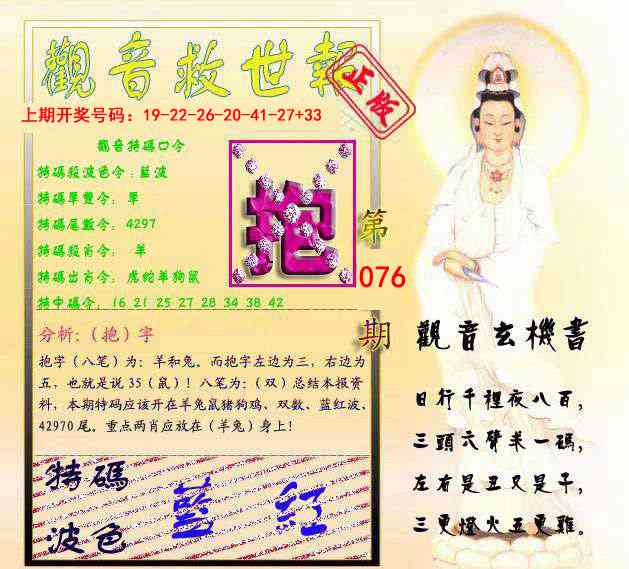 觀音救世報
正版
上期开奖号码：19-22-26-20-41-27+33
觀音特碼口令
特碼段波色令：藍波
特碼單雙令：單
特碼尾數令：4297
特碼殺肖令：羊
特碼出肖令：虎蛇羊狗鼠
特中碼令：16 21 25 27 28 34 38 42
抱
第
076
期
分析：（抱）字
抱字（八笔）为：羊和兔。而抱字左边为三，右边为
五，也就是说35（鼠）！八笔为：（双）总结本报资
料，本期特码应该开在羊兔鼠猪狗鸡、双数、蓝红波、
42970尾。重点两肖应放在（羊兔）身上！
特碼
波色
藍 紅
觀音玄機書
日行千裡夜八百，
三頭六臂米一碼，
左右是丑又是子，
三更燈火五更雞。